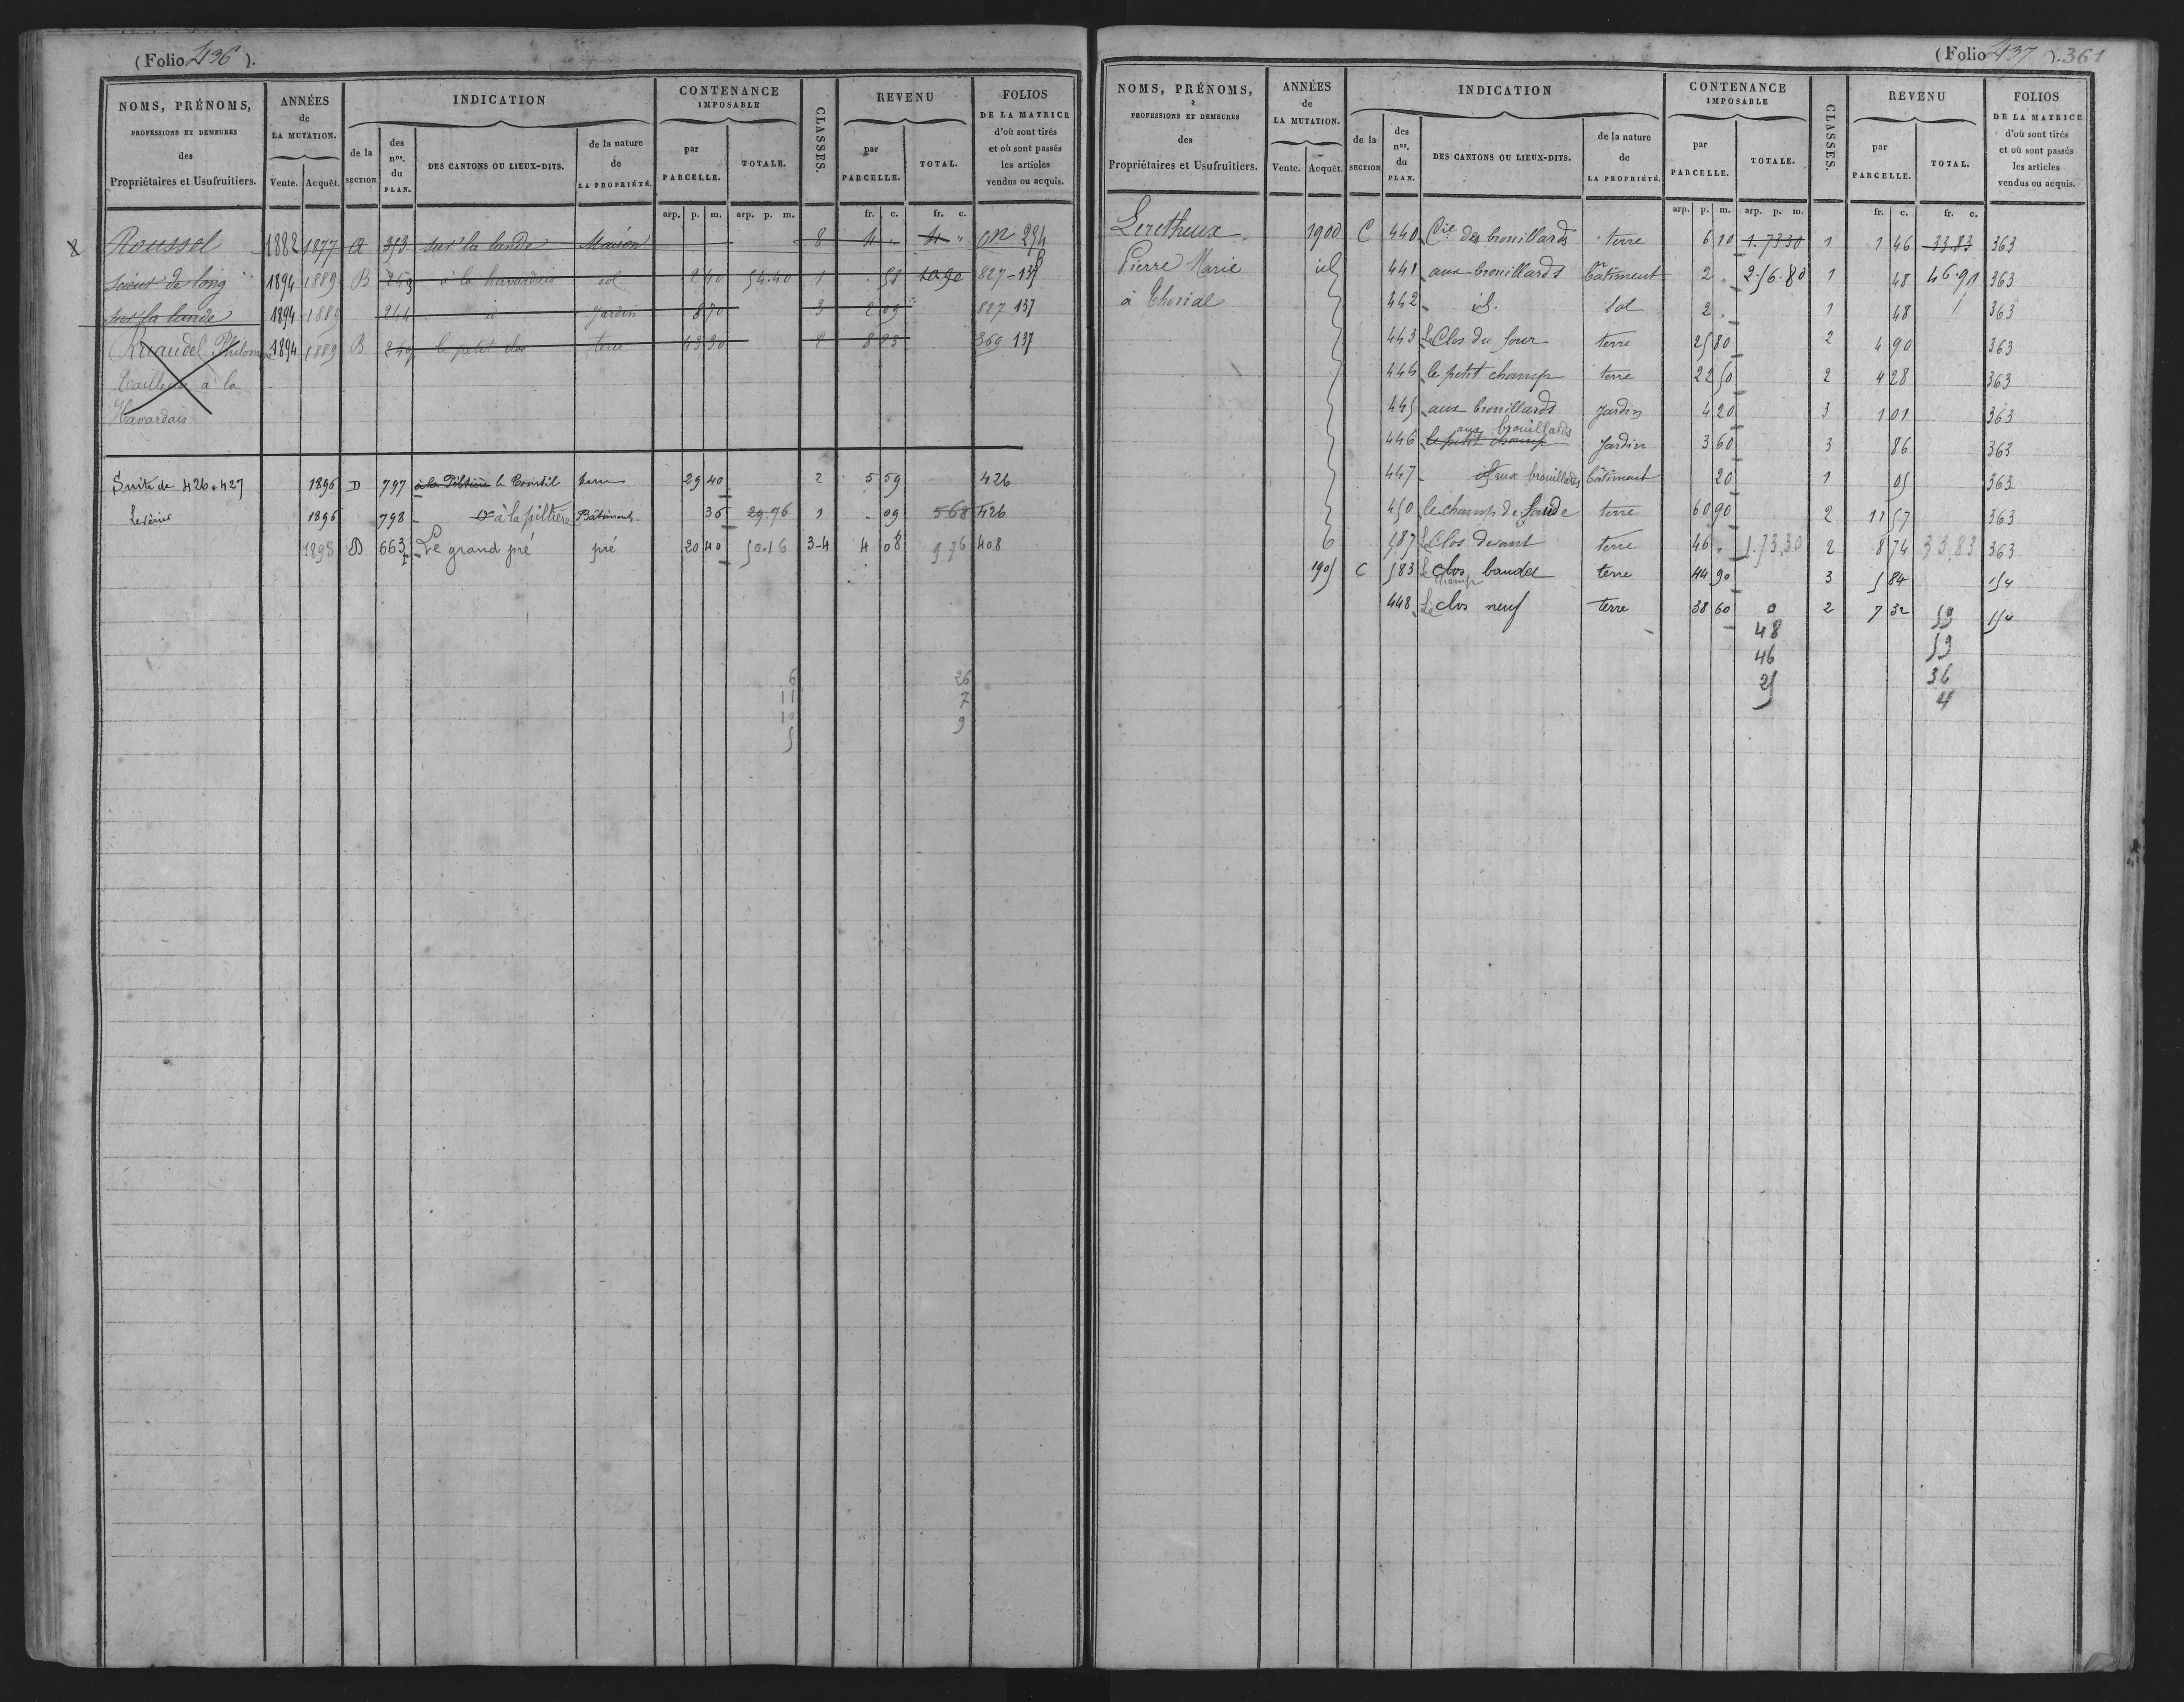 (Folio 436).
NOMS, PRÉNOMS, PROFESSIONS ET DEMEURES des Propriétaires et Usufruitiers.
ANNÉES de LA MUTATION. Vente. Acquêt.
INDICATION de la SECTION des nos. du PLAN. DES CANTONS OU LIEUX-DITS. de la nature de LA PROPRIÉTÉ.
CONTENANCE IMPOSABLE par PARCELLE. TOTALE.
CLASSES.
REVENU par PARCELLE. TOTAL.
FOLIOS DE LA MATRICE d'où sont tirés et où sont passés les articles vendus ou acquis.
arp. p. m. arp. p. m. fr. c. fr. c.
Roussel 1882 1877 A 353 sur la lande Maison 8 4 " 4 " 254
scieur de long 1894 1889 B 243 à la havardais sol 2 40 54.40 1 58 827-137
sur la lande 1894 1889 244 id jardin 8 70 3 2 09 827 137
Ruaudel Philomène 1894 1889 B 249 le petit clos terre 43 30 2 8 23 369 137
Tailleur à la
Havardais
Suite de 426 & 427 1896 D 797 à la Piltière le Courtil terre 29 40 2 5 59 426
1896 798 à la piltière Bâtiment 36 29.76 1 .. 09 5.68 426
1898 D 663 Le grand pré pré 20 40 50.16 3-4 4 08 9.76 408
6 26
11 7
10 9
5
(Folio 437). 361
NOMS, PRÉNOMS, PROFESSIONS ET DEMEURES des Propriétaires et Usufruitiers.
ANNÉES de LA MUTATION. Vente. Acquêt.
INDICATION de la SECTION des nos. du PLAN. DES CANTONS OU LIEUX-DITS. de la nature de LA PROPRIÉTÉ.
CONTENANCE IMPOSABLE par PARCELLE. TOTALE.
CLASSES.
REVENU par PARCELLE. TOTAL.
FOLIOS DE LA MATRICE d'où sont tirés et où sont passés les articles vendus ou acquis.
arp. p. m. arp. p. m. fr. c. fr. c.
Leretheux 1900 C 440 des brouillards terre 6 10 1.73 30 1 1 46 33.83 363
Pierre Marie id 441 aux brouillards bâtiment 2 " 2.56.80 1 48 46.91 363
à 442 id. sol 2 " 1 48 363
443 Le Clos du four terre 25 80 2 4 90 363
444 le petit champ terre 22 50 2 4 28 363
445 aux brouillards jardin 4 20 3 1 01 363
446 le petit champ aux brouillards jardin 3 60 3 86 363
447 id aux brouillards bâtiment 20 1 05 363
450 le champ de lande terre 60 90 2 11 57 363
587 Le Clos devant terre 46 " 1.73.30 2 8 74 33.83 363
1905 C 583 Le clos champ baudet terre 44 90 3 5 84 154
448 Le clos neuf terre 38 60 0 2 7 32 59 154
48 59
46 36
25 4